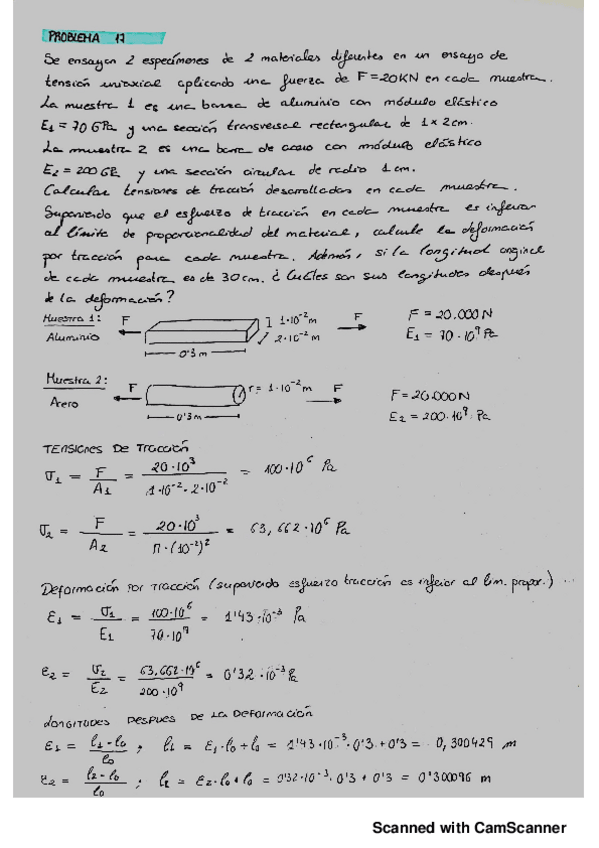 PROBLEMA 17
Se ensayan 2 especímenes de 2 materiales diferentes en un ensayo de
tensión uniaxial aplicando una fuerza de F = 20KN en cada muestra.
La muestra 1 es una barra de aluminio con módulo elástico
E1 = 70 GPa y una sección transversal rectangular de 1 x 2 cm.
La muestra 2 es una barra de acero con módulo elástico
E2 = 200 GPa y una sección circular de radio 1 cm.
Calcular tensiones de tracción desarrolladas en cada muestra.
Suponiendo que el esfuerzo de tracción en cada muestra es inferior
al límite de proporcionalidad del material, calcule la deformación
por tracción para cada muestra. Además, si la longitud original
de cada muestra es de 30 cm. ¿ Cuáles son sus longitudes después
de la deformación?
Muestra 1: F 1·10⁻² m F F = 20.000 N
Aluminio 2·10⁻² m E1 = 70·10⁹ Pa
0'3 m
Muestra 2: F r = 1·10⁻² m F F = 20.000 N
Acero E2 = 200·10⁹ Pa
0'3 m
TENSIONES DE TRACCIÓN
σ1 = F/A1 = 20·10³/1·10⁻²·2·10⁻² = 100·10⁶ Pa
σ2 = F/A2 = 20·10³/π·(10⁻²)² = 63,662·10⁶ Pa
Deformación por Tracción (suponiendo esfuerzo tracción es inferior al lím. propor.)
ε1 = σ1/E1 = 100·10⁶/70·10⁹ = 1'43·10⁻³ Pa
ε2 = σ2/E2 = 63,662·10⁶/200·10⁹ = 0'32·10⁻³ Pa
LONGITUDES DESPUES DE LA DEFORMACIÓN
ε1 = l1-l0/l0 ; l1 = ε1·l0 + l0 = 1'43·10⁻³·0'3 + 0'3 = 0,300429 m
ε2 = l2-l0/l0 ; l2 = ε2·l0 + l0 = 0'32·10⁻³·0'3 + 0'3 = 0'300096 m
Scanned with CamScanner